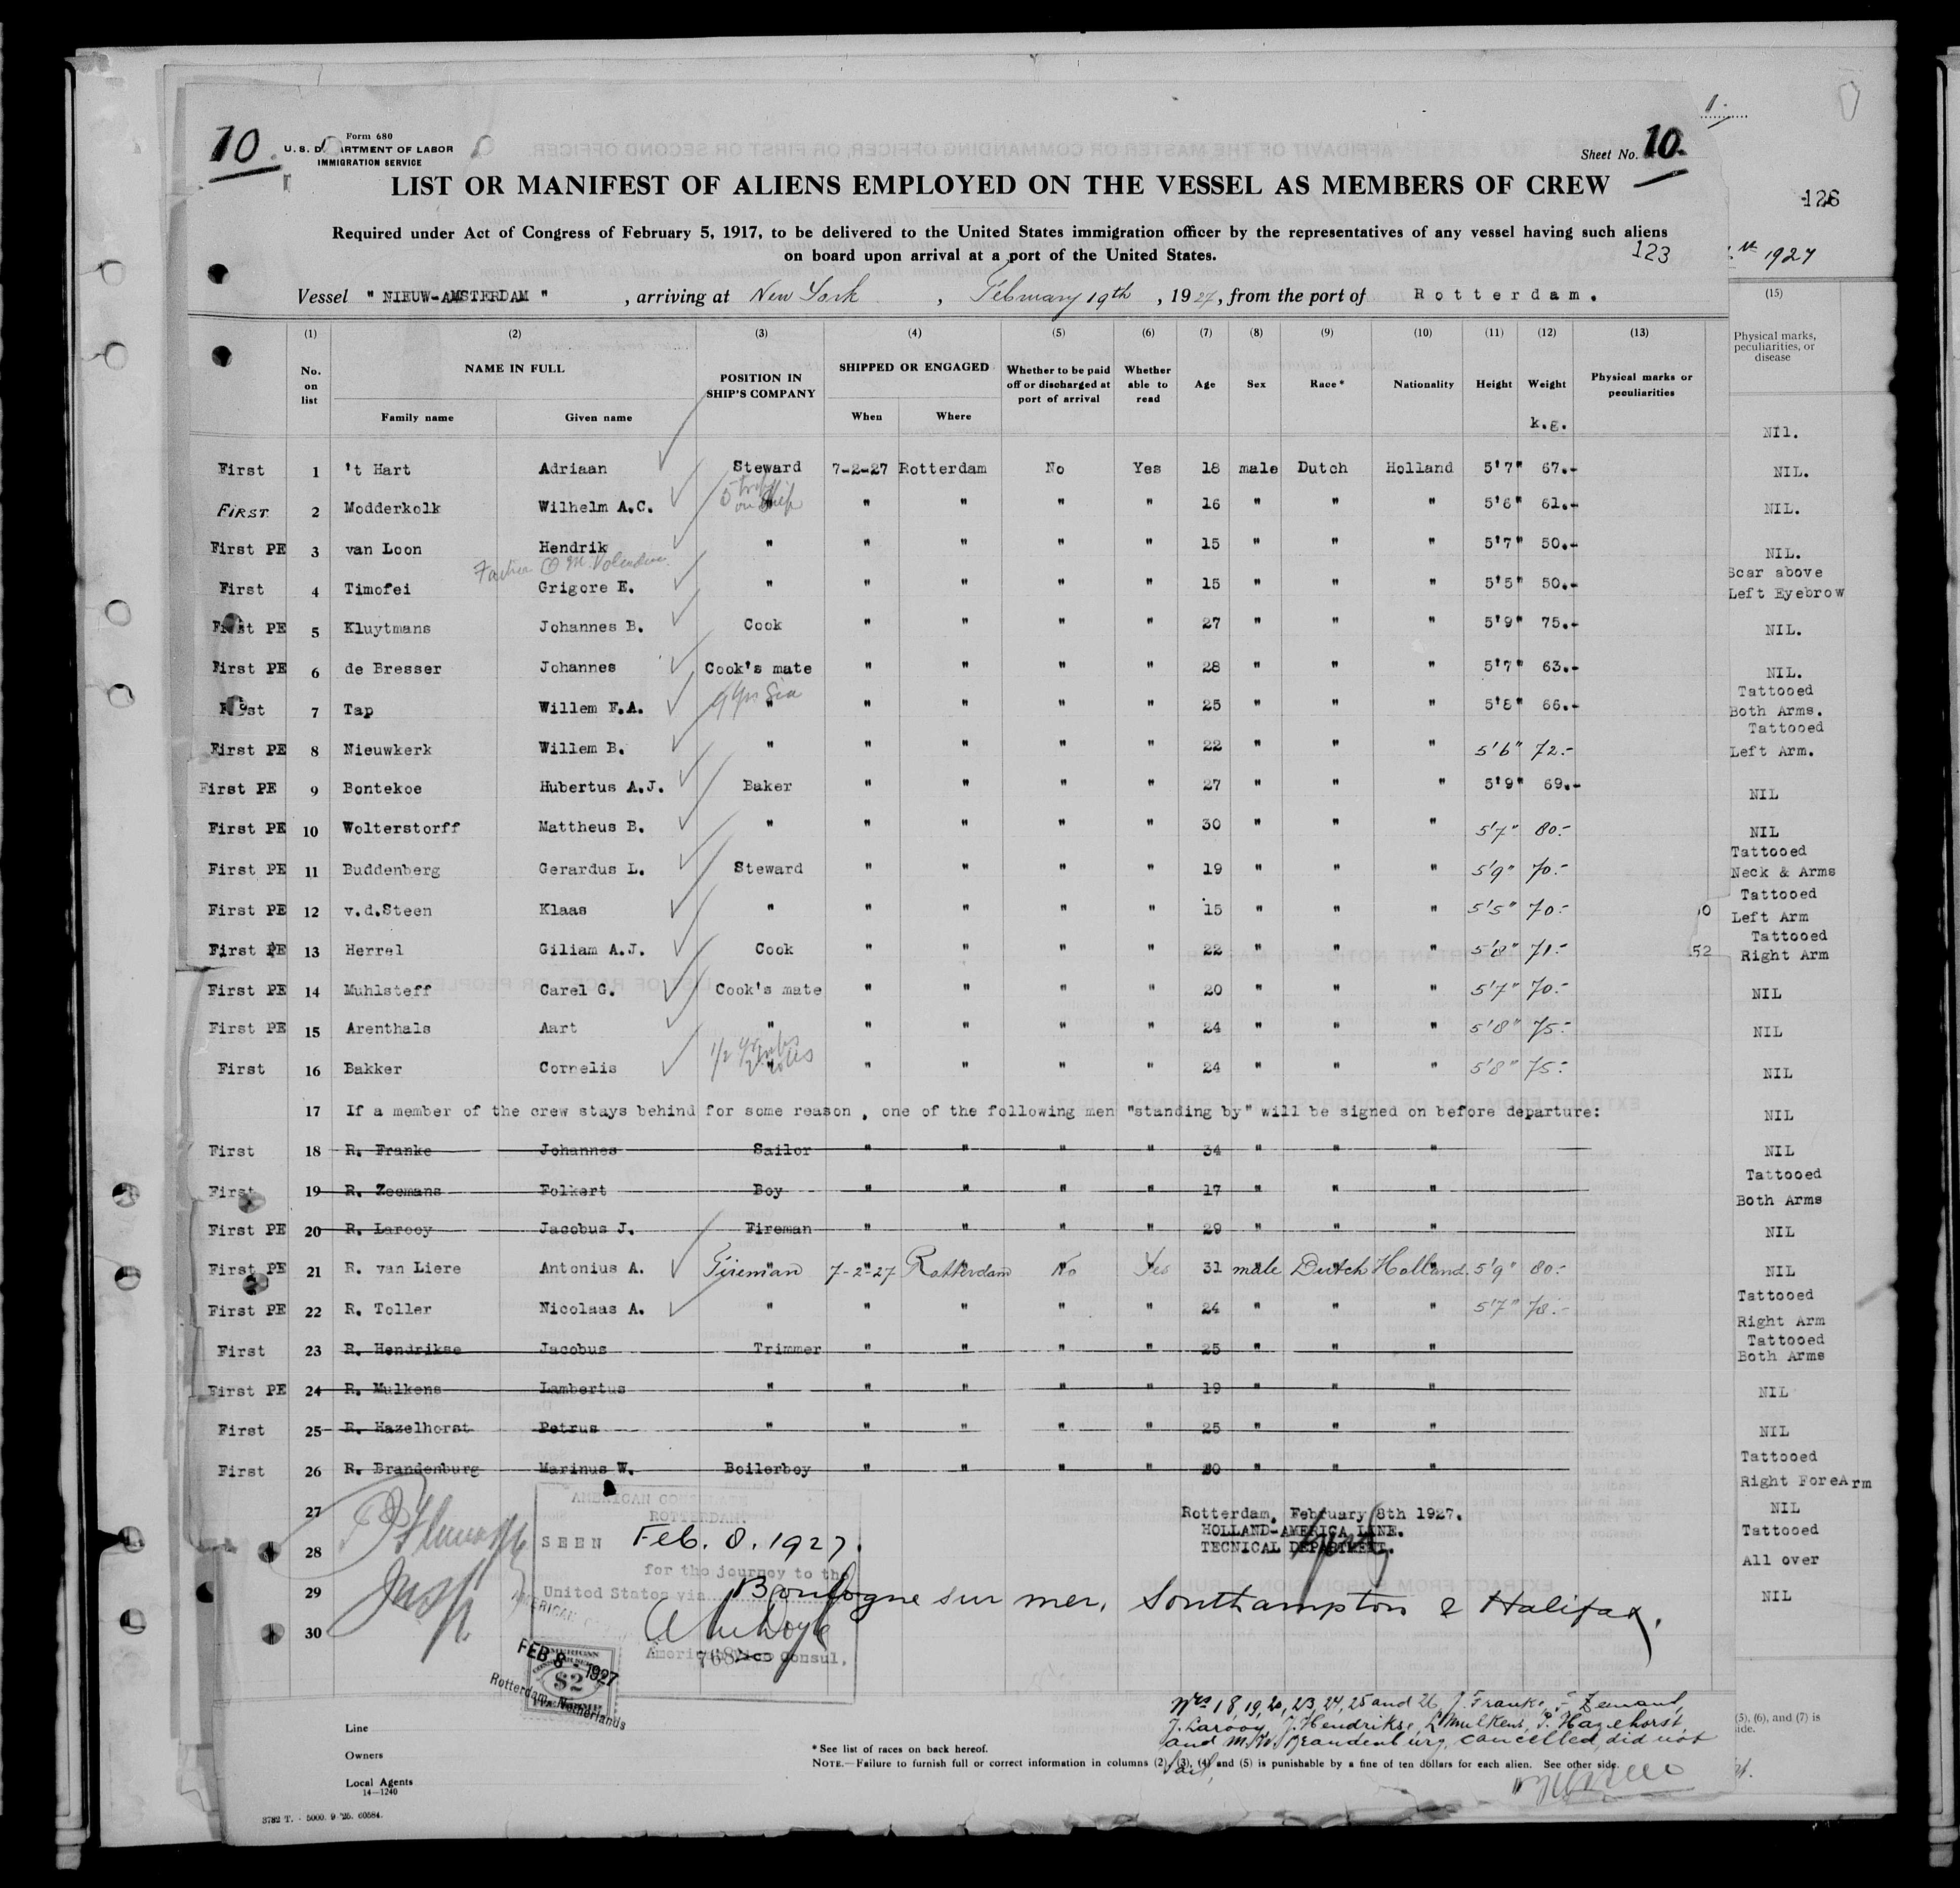 10.
Form 680
U. S. D ARTMENT OF LABOR
IMMIGRATION SERVICE
Sheet No. 10.
LIST OR MANIFEST OF ALIENS EMPLOYED ON THE VESSEL AS MEMBERS OF CREW
126
Required under Act of Congress of February 5, 1917, to be delivered to the United States immigration officer by the representatives of any vessel having such aliens
on board upon arrival at a port of the United States.
123
1927
Vessel " NIEUW-AMSTERDAM " , arriving at New York , February 19th , 1927, from the port of Rotterdam.
(1) (2) (3) (4) (5) (6) (7) (8) (9) (10) (11) (12) (13) (15)
No. on list NAME IN FULL POSITION IN SHIP'S COMPANY SHIPPED OR ENGAGED Whether to be paid off or discharged at port of arrival Whether able to read Age Sex Race* Nationality Height Weight Physical marks or peculiarities Physical marks, peculiarities, or disease
Family name Given name When Where k.g.
NIl.
First 1 't Hart Adriaan Steward 7-2-27 Rotterdam No Yes 18 male Dutch Holland 5'7" 67.- NIL.
5 trips on Ship
FIRST. 2 Modderkolk Wilhelm A.C. " " " " " 16 " " " 5'6" 61.- NIL.
First PE 3 van Loon Hendrik " " " " " 15 " " " 5'7" 50.- NIL.
First 4 Timofei Grigore E. " " " " " 15 " " " 5'5" 50.- Scar above Left Eyebrow
First PE 5 Kluytmans Johannes B. Cook " " " " 27 " " " 5'9" 75.- NIL.
First PE 6 de Bresser Johannes Cook's mate " " " " 28 " " " 5'7" 63.- NIL.
First 7 Tap Willem F.A. " " " " " 25 " " " 5'8" 66.- Tattooed Both Arms.
First PE 8 Nieuwkerk Willem B. " " " " " 22 " " " 5'6" 72.- Tattooed Left Arm.
First PE 9 Bontekoe Hubertus A.J. Baker " " " " 27 " " " 5'9" 69.- NIL
First PE 10 Wolterstorff Mattheus B. " " " " " 30 " " " 5'7" 80.- NIL
First PE 11 Buddenberg Gerardus L. Steward " " " " 19 " " " 5'9" 70.- Tattooed Neck & Arms
First PE 12 v.d.Steen Klaas " " " " " 15 " " " 5'5" 70.- Tattooed Left Arm
First PE 13 Herrel Giliam A.J. Cook " " " " 22 " " " 5'8" 71.- 52 Tattooed Right Arm
First PE 14 Muhlsteff Carel G. Cook's mate " " " " 20 " " " 5'7" 70.- NIL
First PE 15 Arenthals Aart " " " " " 24 " " " 5'8" 75.- NIL
First 16 Bakker Cornelis " " " " " 24 " " " 5'8" 75.- NIL
17 If a member of the crew stays behind for some reason, one of the following men "standing by" will be signed on before departure: NIL
First 18 R. Franke Johannes Sailor " " " " 34 " " " NIL
First 19 R. Zeemans Folkert Boy " " " " 17 " " " Tattooed Both Arms
First PE 20 R. Larooy Jacobus J. Fireman " " " " 29 " " " NIL
First PE 21 R. van Liere Antonius A. Fireman 7-2-27 Rotterdam No Yes 31 male Dutch Holland 5'9" 80.- NIL
First PE 22 R. Toller Nicolaas A. " " " " " 24 " " " 5'7" 78.- Tattooed Right Arm
First 23 R. Hendrikse Jacobus Trimmer " " " " 25 " " " Tattooed Both Arms
First PE 24 R. Mulkens Lambertus " " " " " 19 " " " NIL
First 25 R. Hazelhorst Petrus " " " " " 25 " " " NIL
First 26 R. Brandenburg Marinus W. Boilerboy " " " " 20 " " " Tattooed Right ForeArm
27 NIL
28 Tattooed All over
29 NIL
30
AMERICAN CONSULATE
ROTTERDAM.
SEEN Feb. 8. 1927.
for the journey to the
United States via Boulogne sur mer, Southampton & Halifax.
American Vice Consul.
768
Rotterdam, February 8th 1927.
HOLLAND-AMERICA LINE.
TECNICAL DEPARTMENT.
FEB 8 - 1927
AMERICAN
$2
Rotterdam, Netherlands
Nrs 18, 19, 20, 23, 24, 25 and 26, J. Franke, F. Zemans,
J. Larooy, J. Hendrikse, L. Mulkens, P. Hazelhorst,
and M.W. Brandenburg, cancelled, did not
sail.
Line
Owners
Local Agents
14—1240
* See list of races on back hereof.
NOTE.—Failure to furnish full or correct information in columns (2), (3), (4) and (5) is punishable by a fine of ten dollars for each alien. See other side.
(5), (6), and (7) is
ide.
3782 T. - 5000. 9 '25. 60584.